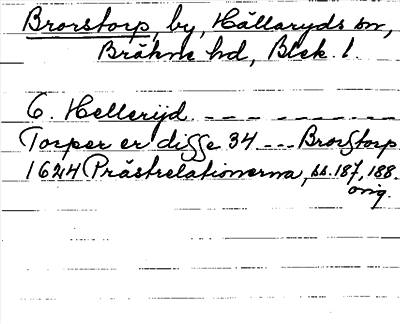 Brorstorp, by, Hällaryds sn,
Bräkne hd, Blek. l.
6. Hellerijd. _ _ _ _ _ _ _ _
Torper er disse 34 _ _ _ Brorstorp
1624 Prästrelationerna, ss. 187, 188.
orig.